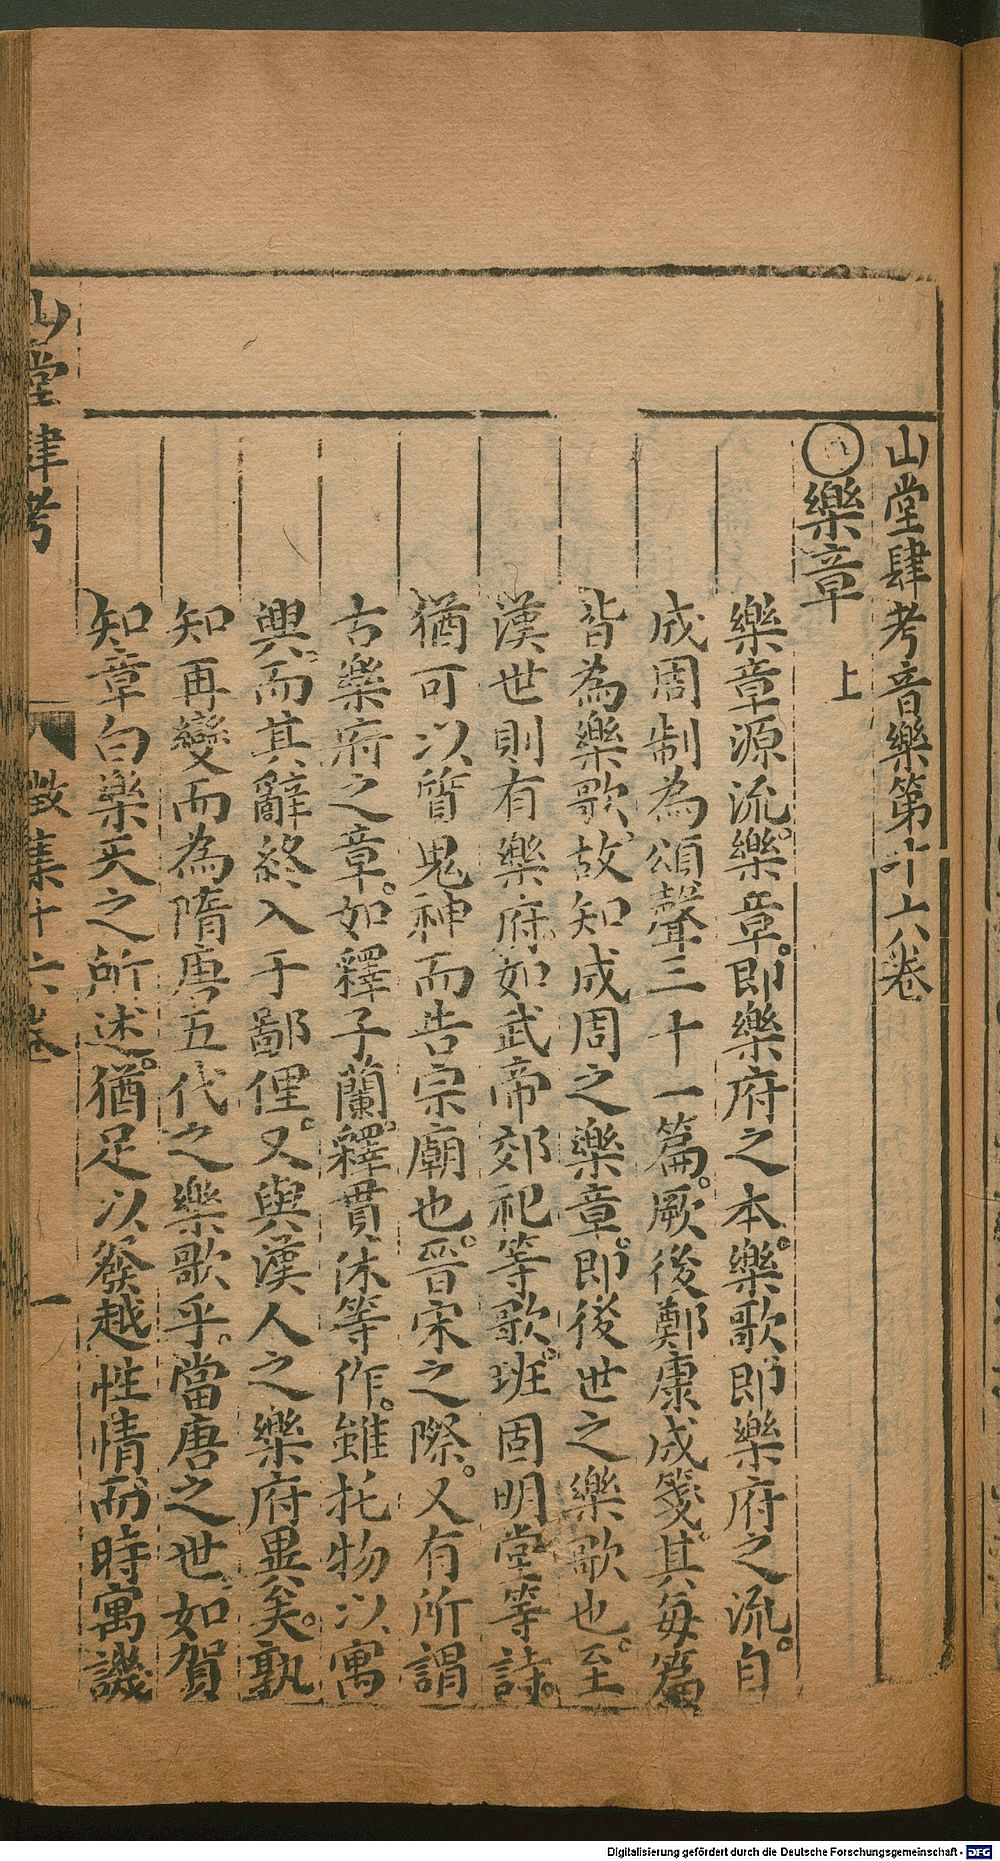 山堂肆考音樂第十六卷
樂章 上
樂章源流。樂章。即樂府之本。樂歌即樂府之流。自
成周制為頌聲三十一篇。厥後鄭康成箋。其每篇
皆為樂歌。故知成周之樂章。即後世之樂歌也。至
漢世則有樂府。如武帝郊祀等歌。班固明堂等詩。
猶可以質鬼神而告宗廟也。晉宋之際。又有所謂
古樂府之章。如釋子蘭。釋貫休等作。雖托物以寓
興。而其辭終入于鄙俚。又與漢人之樂府異矣。孰
知再變而為隋唐五代之樂歌乎。當唐之世。如賀
知章白樂天之所述。猶足以發越性情而時寓譏
山堂肆考 徵集十六卷 一
Digitalisierung gefördert durch die Deutsche Forschungsgemeinschaft - DFG